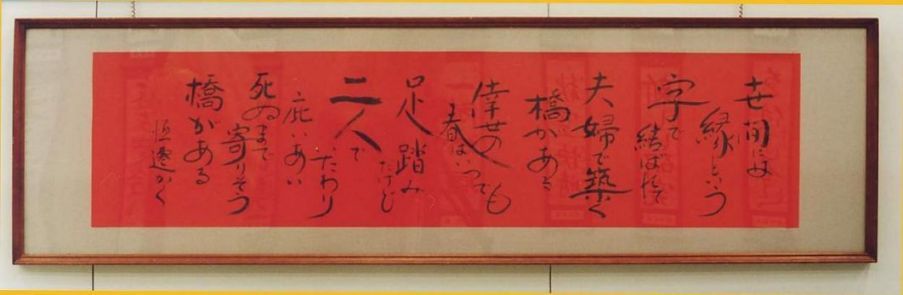 世間には
縁という
字で
結ばれて
夫婦で築く
橋がある
倖せの
春はいつでも
足踏み
だけど
二人で
いたわり
庇いあい
死ぬまで
寄りそう
橋がある
かく